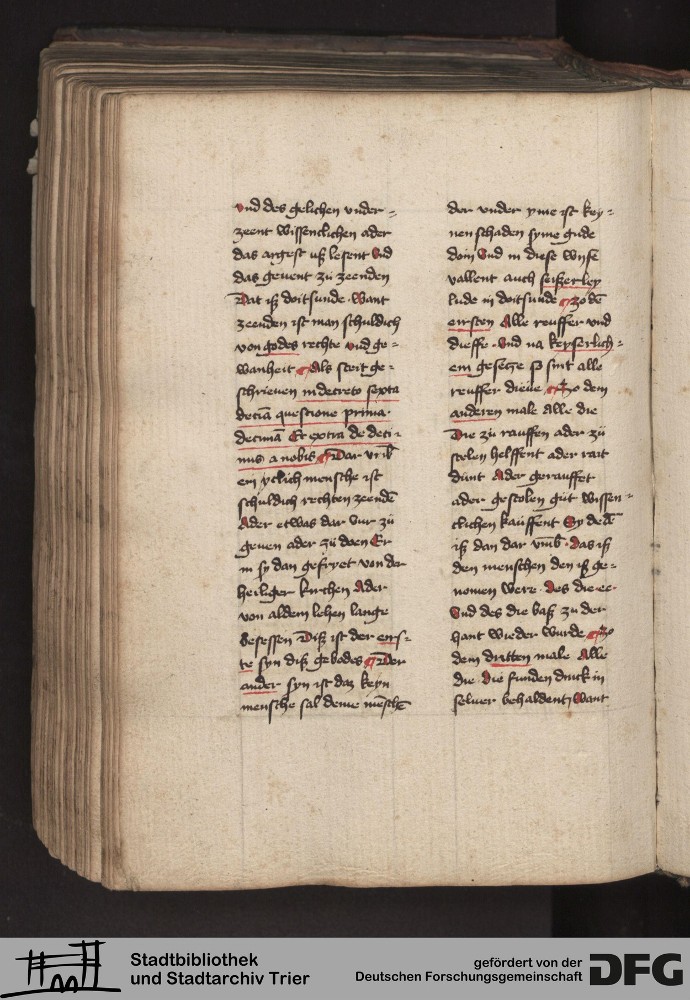 vnd des gelichen vnder=
zeent wissentlichen ader
das argest uß lesent Vnd
das gevent zü zeenden
Dat iß doitsunde. Want
zeenden ist man schuldich
von godes rechte vnd ge=
wanheit Als steit ge=
schrieuen in decreto sexta
deciā questione prima.
decimā Et extra de deci=
mis a nobis Dar vmb
ein yclich mensche ist
schuldich rechten zeendē
Ader etwas dar vur zü
geuen ader zü doen Er
in sy dan gefryet von der
heiliger kirchen Ader
von aldem lehen lange
besessen Diß ist der eirs-
te syn diß gebodes Der
ander syn ist daz keyn
mensche sal deme mēschē
der vnder yme ist key=
nen schaden syme gude
doin Vnd in diese wyse
vallent auch seißerley
lude in doitsunde Zo dē
eirsten Alle reuffer vnd
dieffe. Vnd na keyserlich=
em gesetze so sint alle
reuffer dieue Zo dem
anderen male Alle die
Die zü rauffen ader zü
stelen helffent ader rait
dünt Ader gerauffet
ader gestolen güt wissen=
clichen kauffent Sy dedē
iß dan dar vmb. Das iß
den menschen den iß ge=
nomen were. des die ee
Vnd des die baß zu der
hant wieder wurde Zo
dem dritten male Alle
die. Die funden dinck in
seluer behaldent, Want
Stadtbibliothek
und Stadtarchiv Trier
gefördert von der
Deutschen Forschungsgemeinschaft
DFG